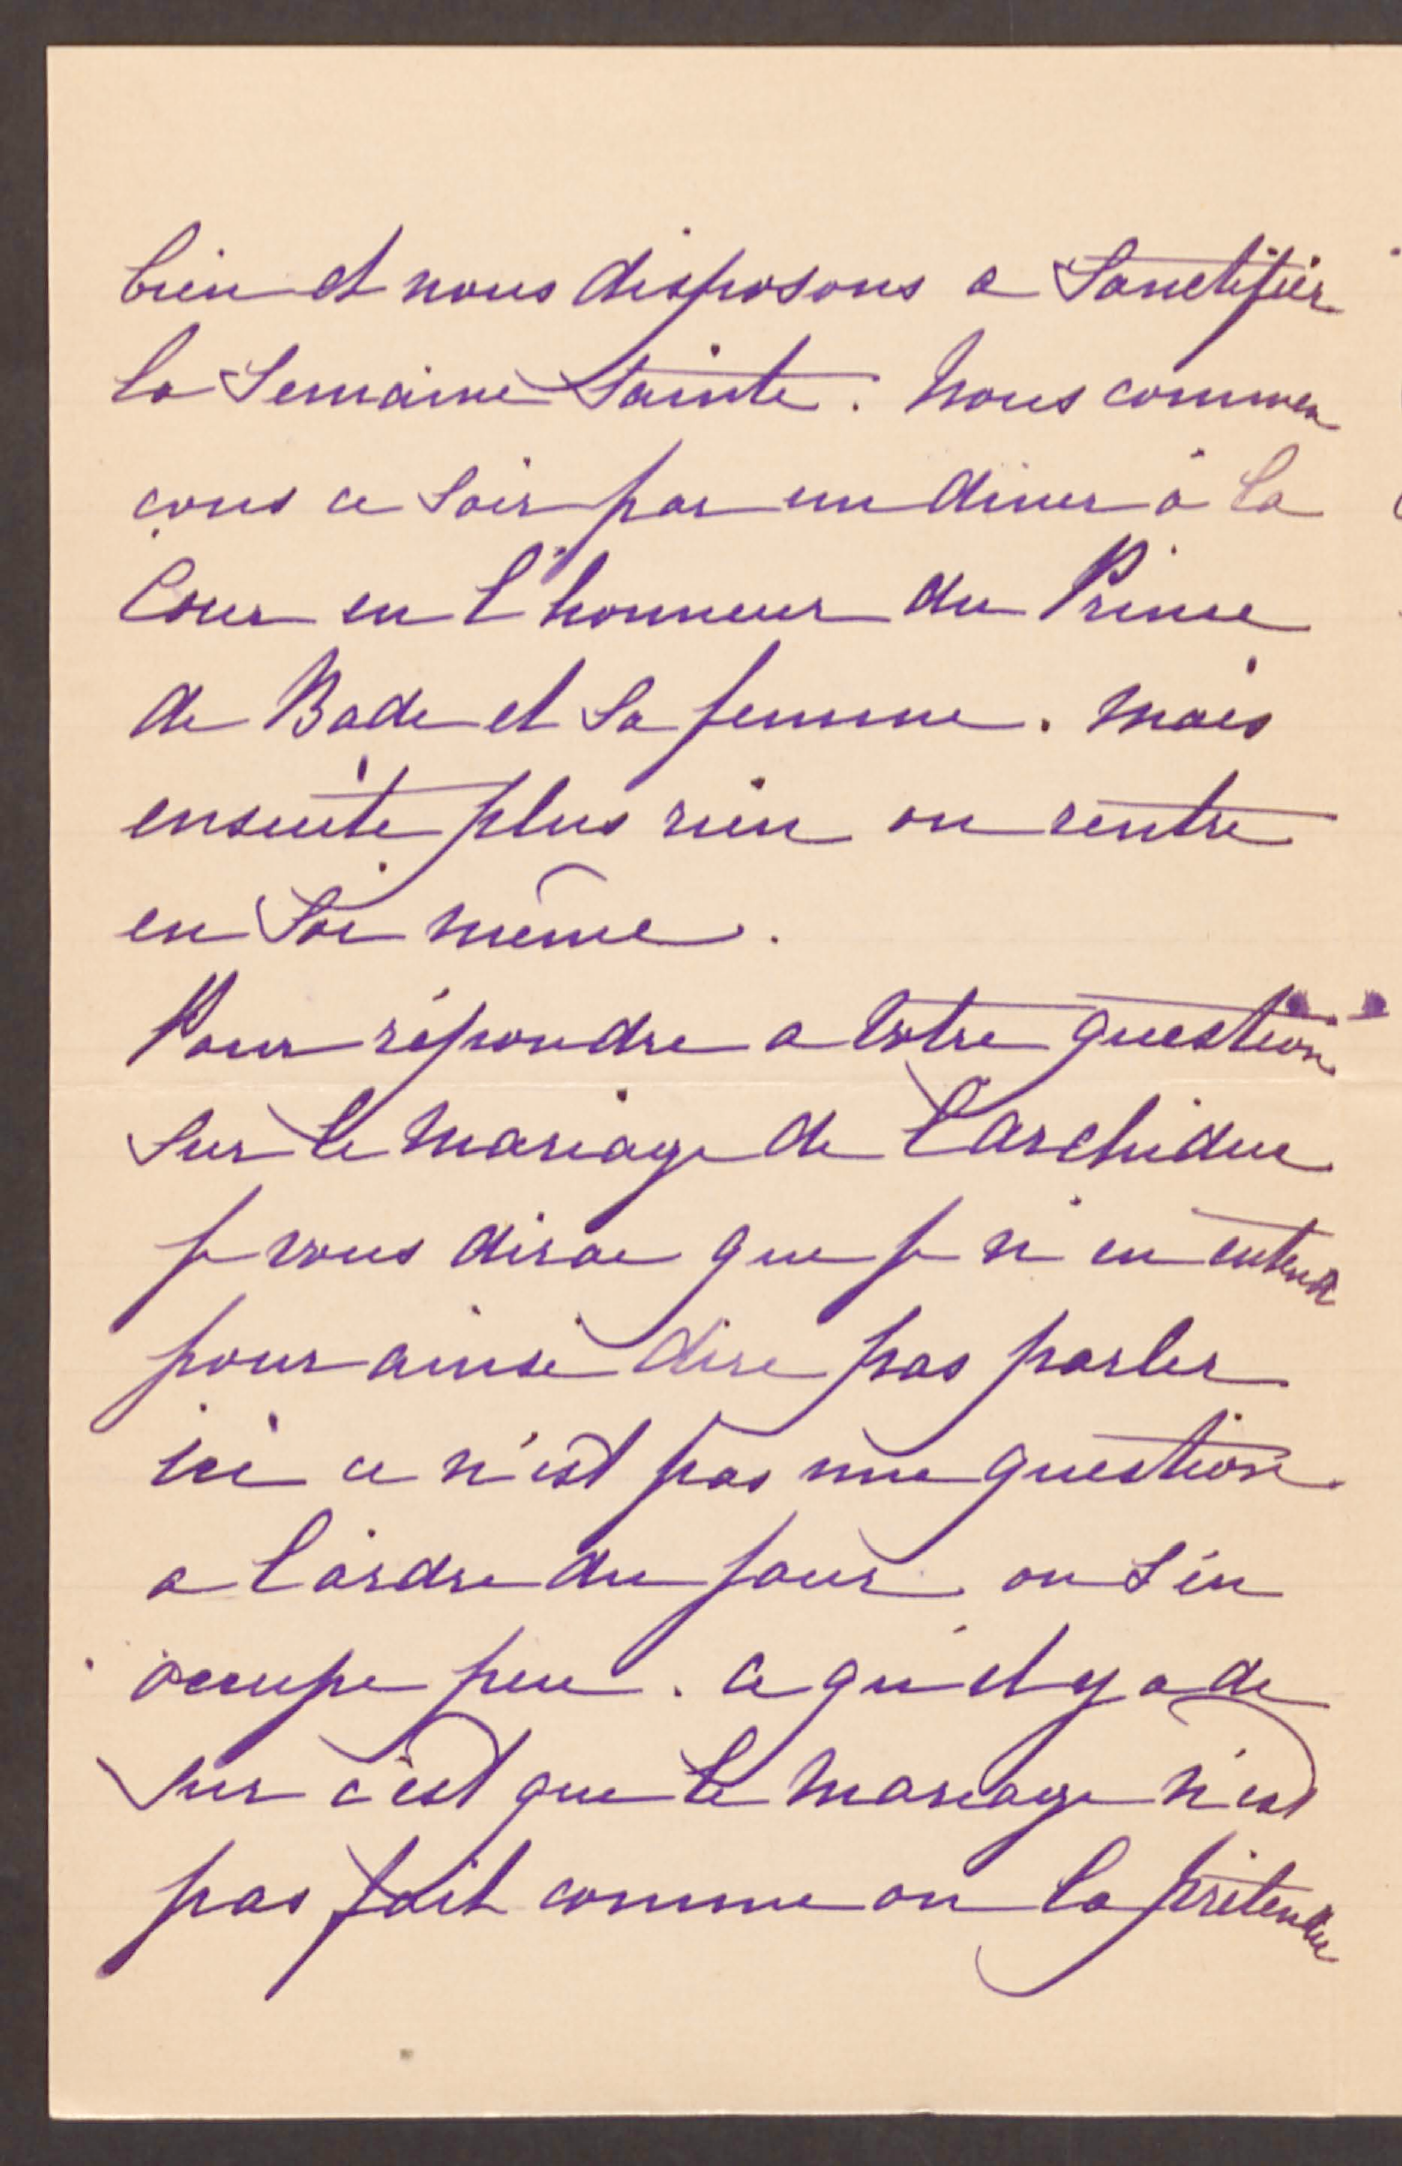 bien et nous disposons a Sanctifier
la Semaine Sainte. Nous commen
çons ce Soir par un diner à la
Cour en l'honneur du Prince
de Bade et Sa femme. Mais
ensuite plus rien on rentre
en Soi même.
Pour répondre a votre question
Sur le Mariage de l'archiduc
je vous dirai que je n'en entend
pour ainsi dire pas parler
ici ce n'est pas une question
a l'ordre du jour. on S'en
occupe peu. Ce qu'il y a de
Sur c'est que le Mariage n'est
pas fait comme on la prétendu